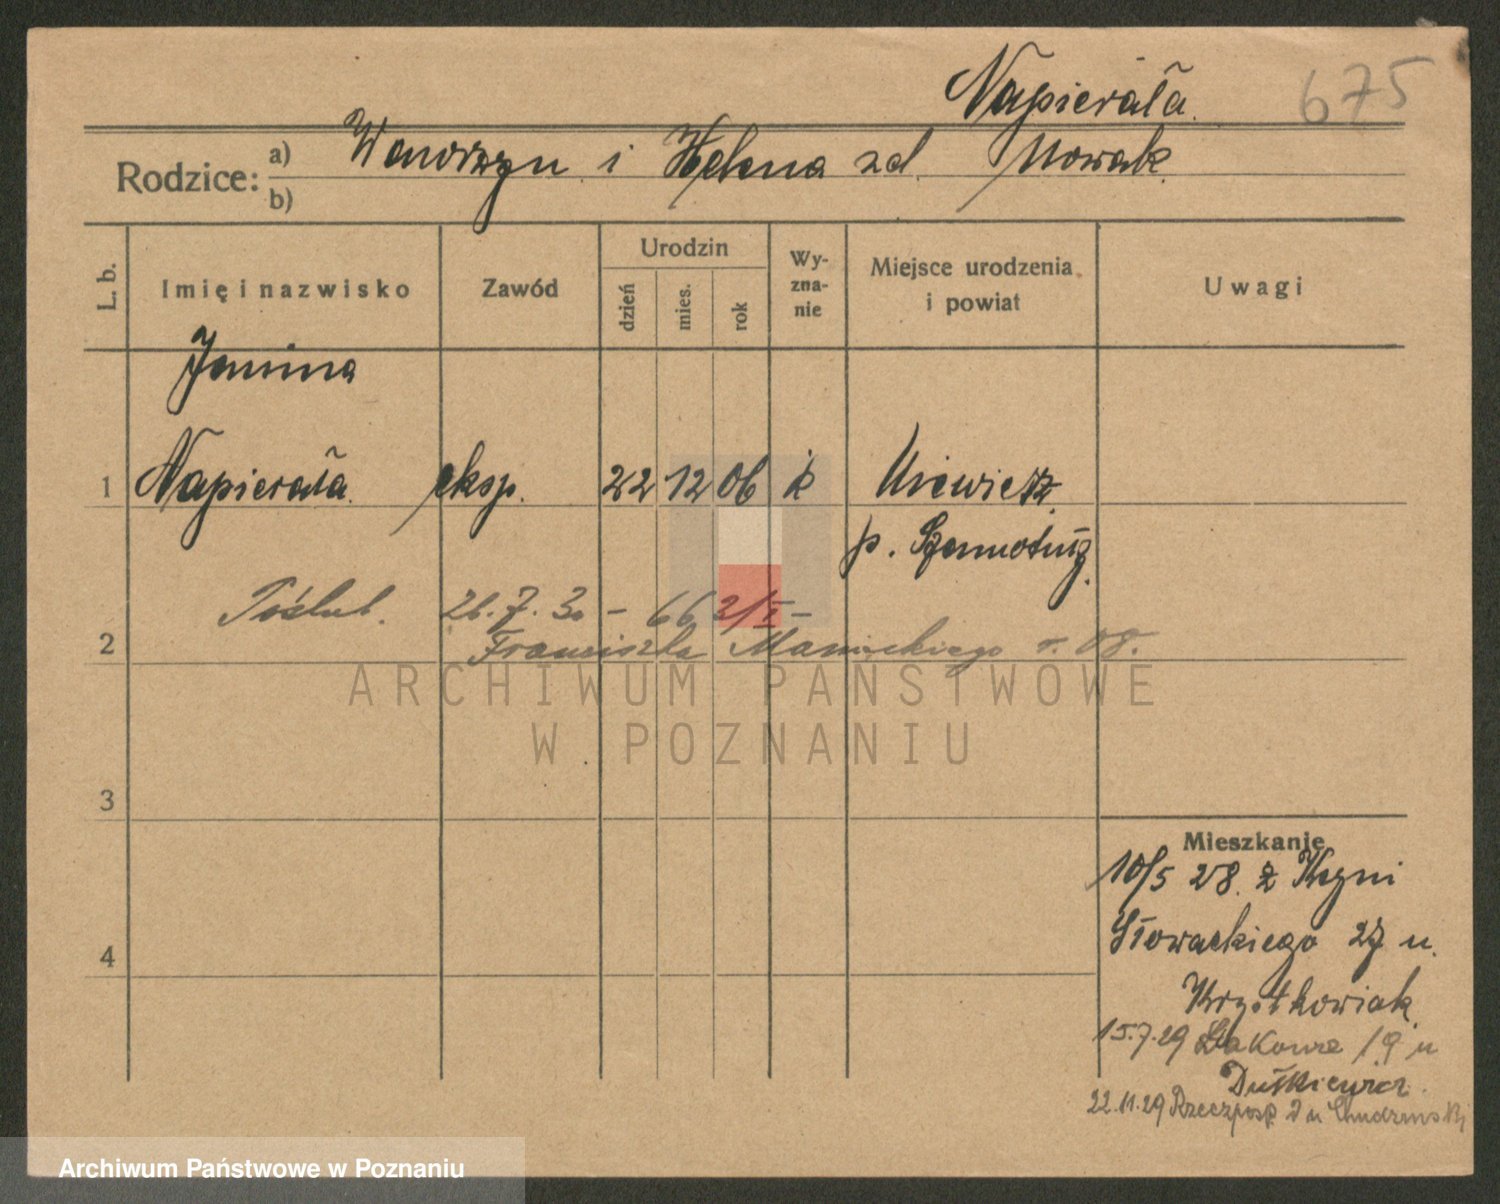 Napierała 675
Rodzice: a) Wawrzyn i Helena zd. Nowak
b)
L. b. Imię i nazwisko Zawód Urodzin dzień mies. rok Wyznanie Miejsce urodzenia i powiat Uwagi
Janina
1 Napierała eksp. 22 12 06 k
p. Szamotuły
Poślub. 26.7.30 – 66 2/I –
2 Franciszka r. 08.
ARCHIWUM PAŃSTWOWE
W POZNANIU
3
Mieszkanie
10/5 28. z Kcyni
4 Słowackiego 27 u.
15.7.29 Łąkowa 19 u
Dutkiewicz.
22.11.29 Rzeczposp. u
Archiwum Państwowe w Poznaniu